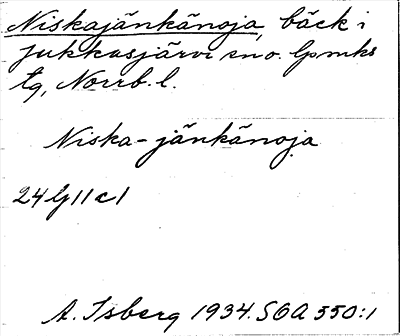 Niskajänkänoja, bäck i
Jukkasjärvi sn o. lpmks
tg, Norrb. l.
Niska-jänkänoja
24 G 11 c 1
A. Isberg 1934. SOA 550:1